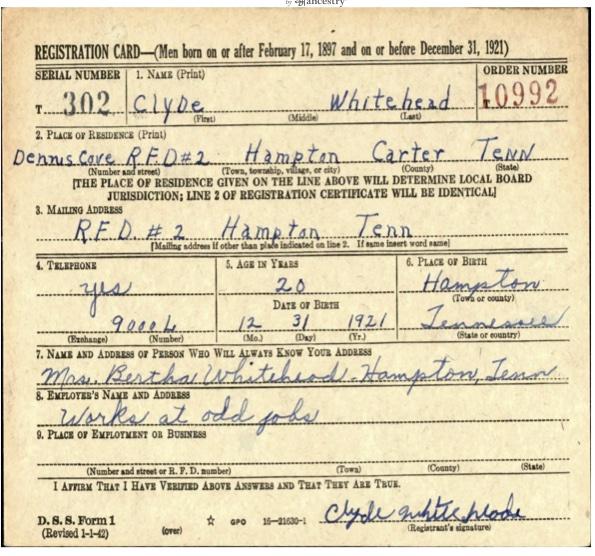 by ancestry
REGISTRATION CARD—(Men born on or after February 17, 1897 and on or before December 31, 1921)
SERIAL NUMBER 1. NAME (Print) ORDER NUMBER
T 302 Clyde Whitehead T 10992
(First) (Middle) (Last)
2. PLACE OF RESIDENCE (Print)
Dennis Cove R.F.D #2 Hampton Carter Tenn
(Number and street) (Town, township, village, or city) (County) (State)
[THE PLACE OF RESIDENCE GIVEN ON THE LINE ABOVE WILL DETERMINE LOCAL BOARD
JURISDICTION; LINE 2 OF REGISTRATION CERTIFICATE WILL BE IDENTICAL]
3. MAILING ADDRESS
R.F.D. # 2 Hampton Tenn
[Mailing address if other than place indicated on line 2. If same insert word same]
4. TELEPHONE 5. AGE IN YEARS 6. PLACE OF BIRTH
yes 20 Hampton
DATE OF BIRTH (Town or county)
9000L 12 31 1921 Tennessee
(Exchange) (Number) (Mo.) (Day) (Yr.) (State or country)
7. NAME AND ADDRESS OF PERSON WHO WILL ALWAYS KNOW YOUR ADDRESS
Mrs. Bertha Whitehead. Hampton, Tenn.
8. EMPLOYER'S NAME AND ADDRESS
Works at odd jobs
9. PLACE OF EMPLOYMENT OR BUSINESS
(Number and street or R. F. D. number) (Town) (County) (State)
I AFFIRM THAT I HAVE VERIFIED ABOVE ANSWERS AND THAT THEY ARE TRUE.
D. S. S. Form 1 ☆ GPO 16—21630-1 Clyde
(Revised 1-1-42) (over) (Registrant's signature)